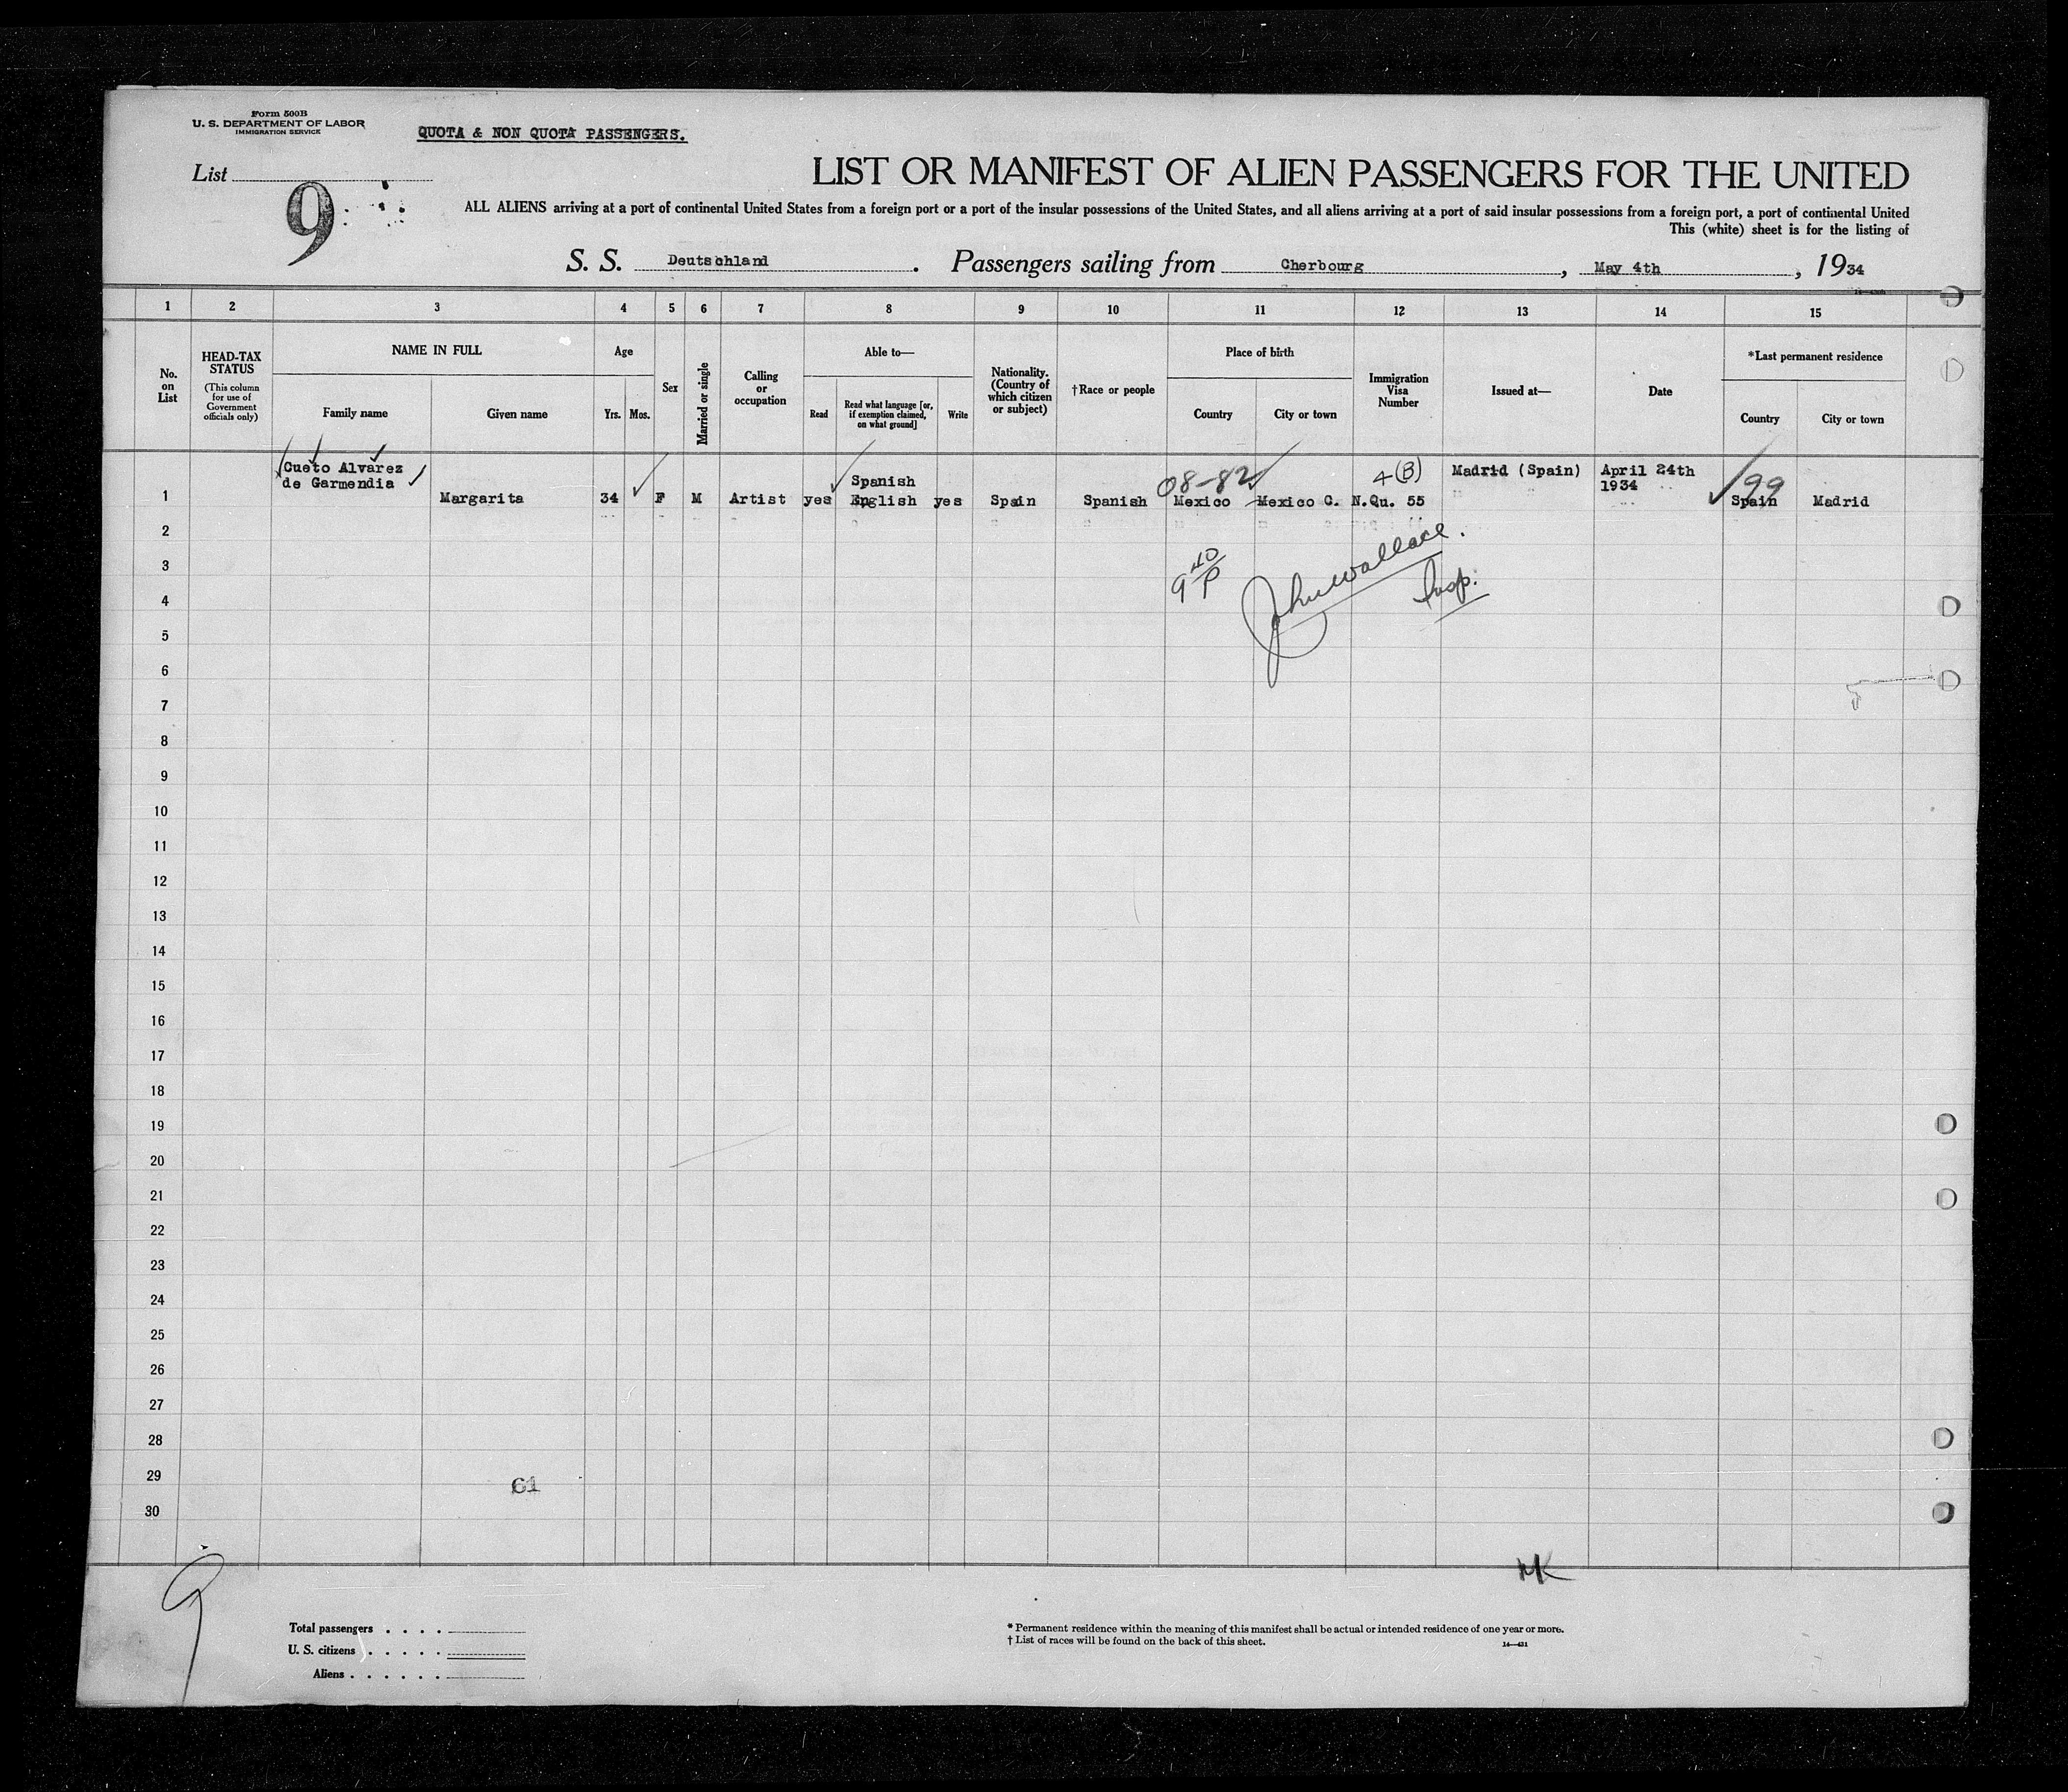 Form 500B
U. S. DEPARTMENT OF LABOR
IMMIGRATION SERVICE
QUOTA & NON QUOTA PASSENGERS.
List
9
LIST OR MANIFEST OF ALIEN PASSENGERS FOR THE UNITED
ALL ALIENS arriving at a port of continental United States from a foreign port or a port of the insular possessions of the United States, and all aliens arriving at a port of said insular possessions from a foreign port, a port of continental United
This (white) sheet is for the listing of
S. S. Deutschland. Passengers sailing from Cherbourg, May 4th, 1934
1 2 3 4 5 6 7 8 9 10 11 12 13 14 15
No. on List
HEAD-TAX STATUS
(This column for use of Government officials only)
NAME IN FULL
Family name
Given name
Age
Yrs.
Mos.
Sex
Married or single
Calling or occupation
Able to—
Read
Read what language [or, if exemption claimed, on what ground]
Write
Nationality. (Country of which citizen or subject)
†Race or people
Place of birth
Country
City or town
Immigration Visa Number
Issued at—
Date
*Last permanent residence
Country
City or town
Cueto Alvarez
de Garmendia
Spanish
08-82
4(B)
Madrid (Spain)
April 24th
1934
99
1 Margarita 34 F M Artist yes English yes Spain Spanish Mexico Mexico C. N.Qu. 55 Spain Madrid
2
3
9 40/P John Wallace.
Insp.
4
5
6
7
8
9
10
11
12
13
14
15
16
17
18
19
20
21
22
23
24
25
26
27
28
29
61
30
9
MK
Total passengers . . . .
U. S. citizens . . . . .
Aliens . . . . . .
* Permanent residence within the meaning of this manifest shall be actual or intended residence of one year or more.
† List of races will be found on the back of this sheet.
14—431